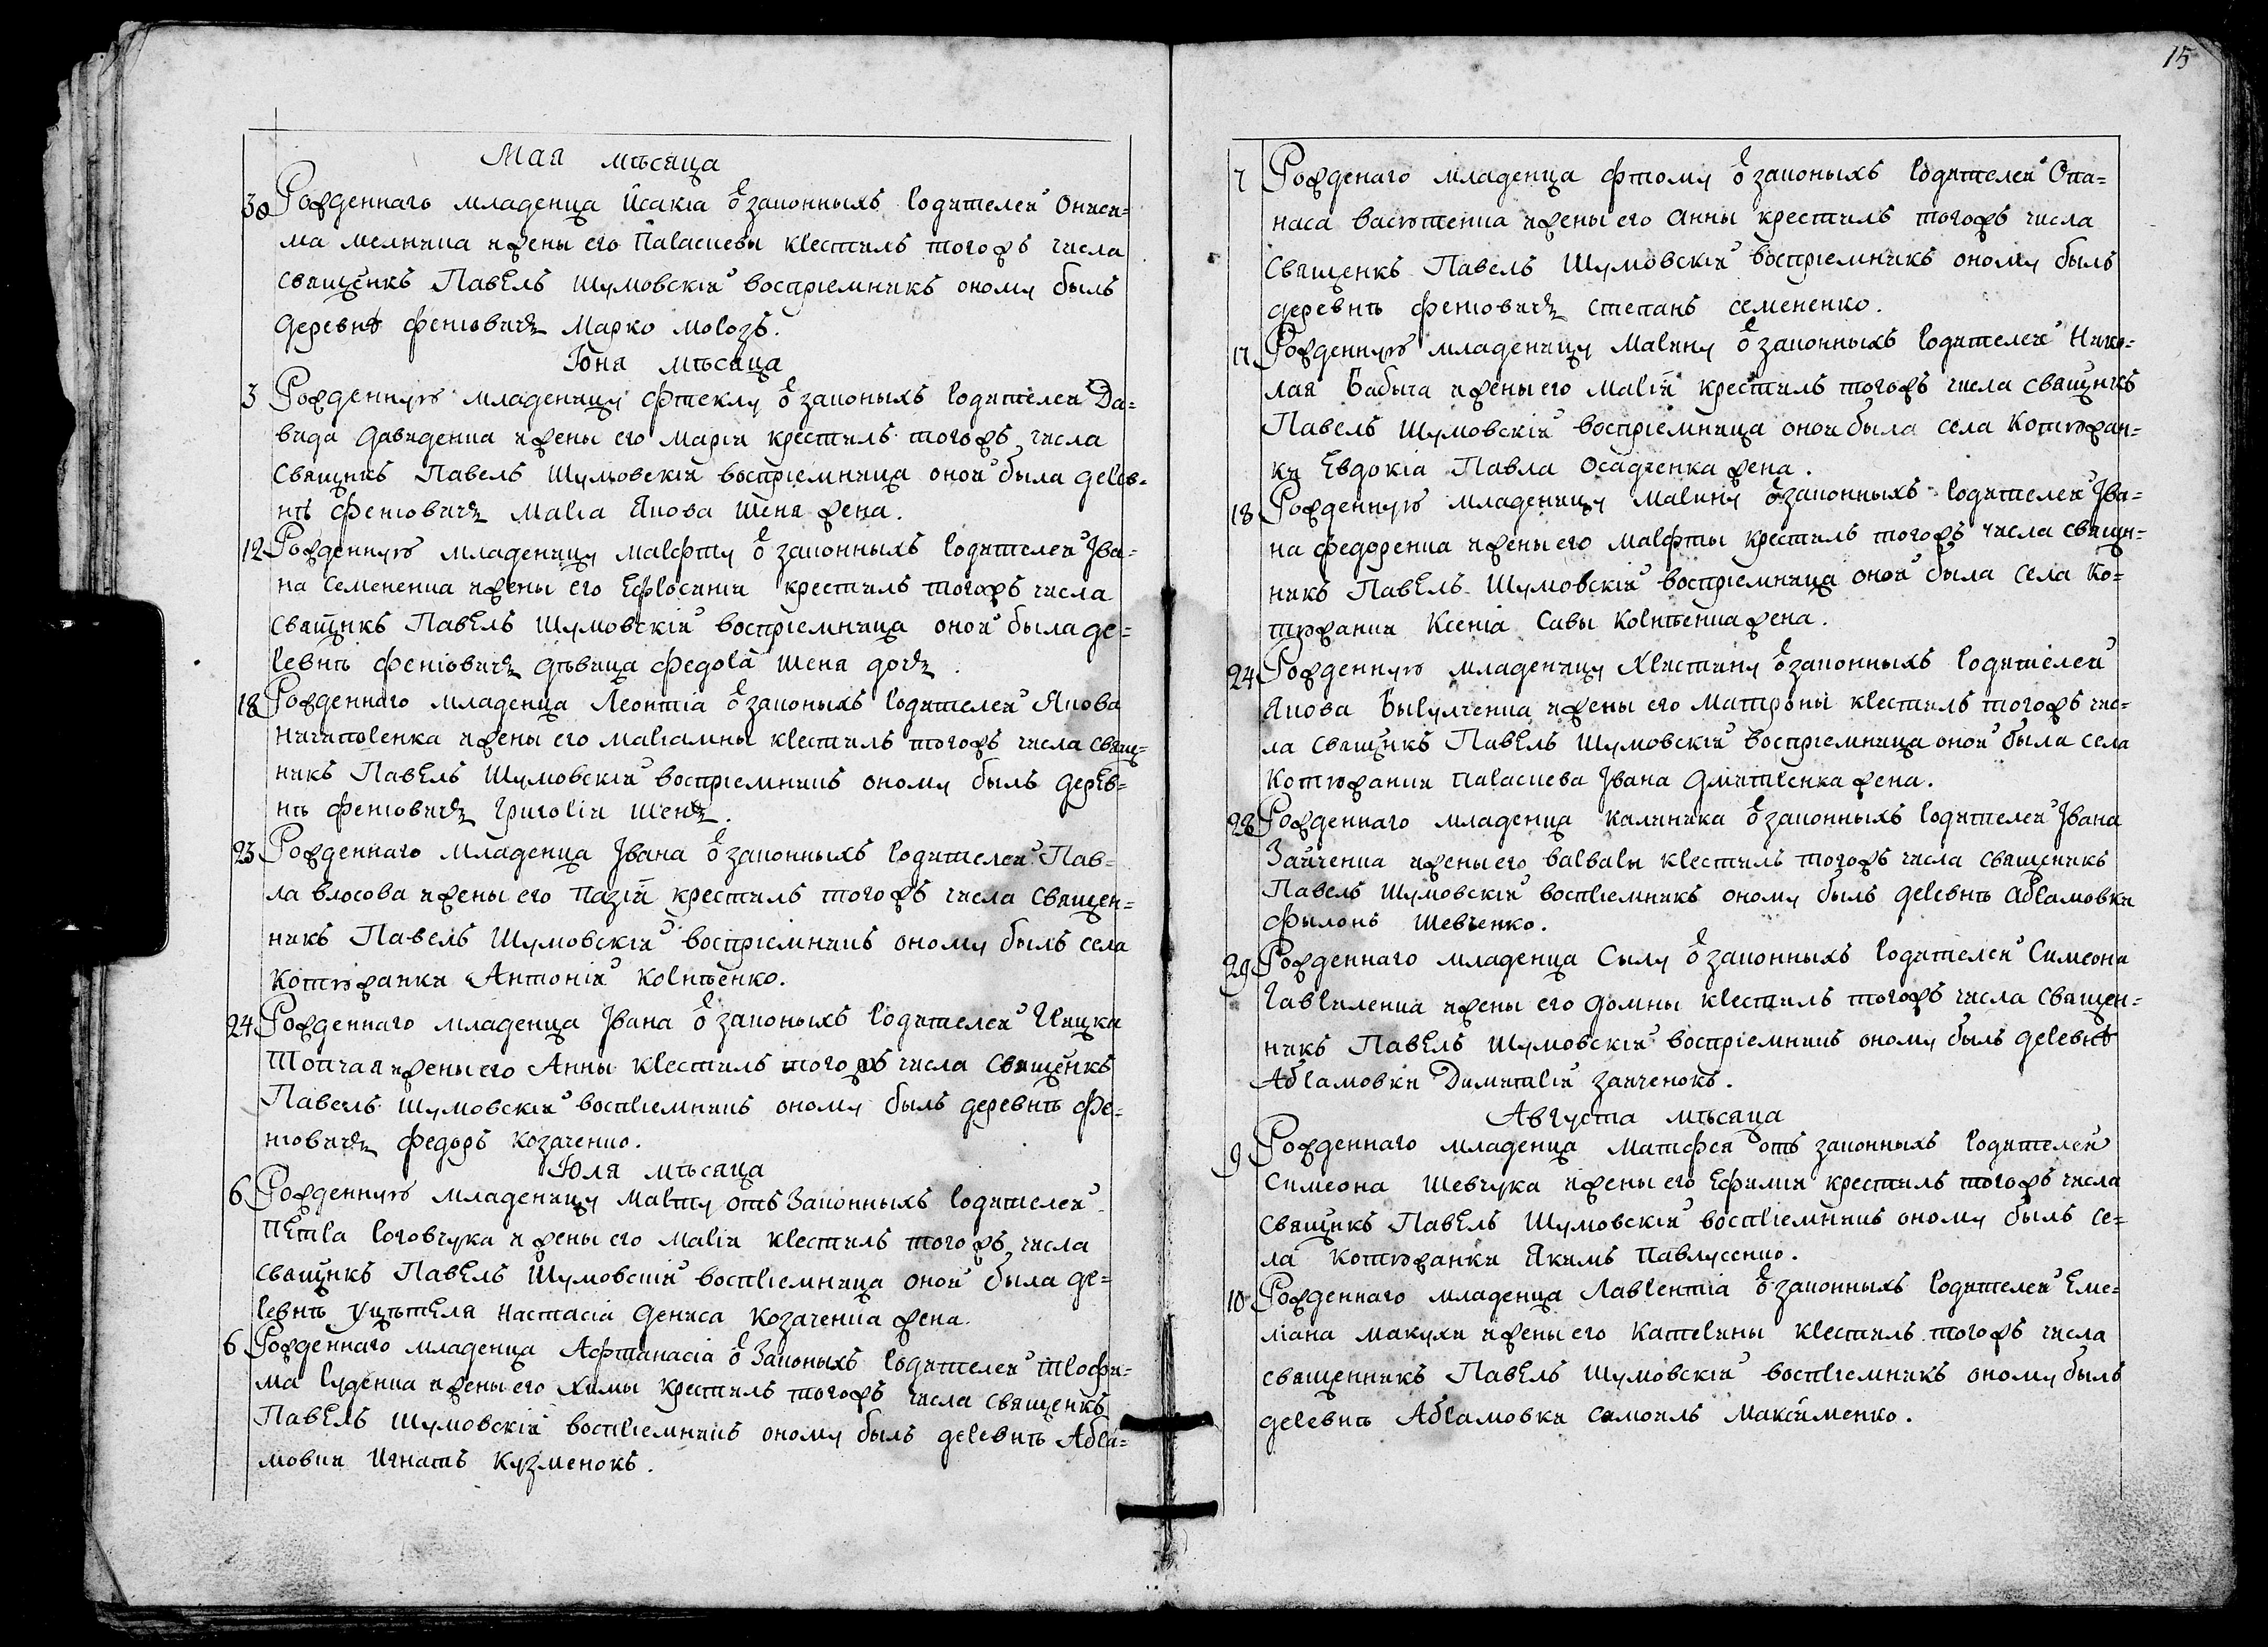 Мая мѣсяца
30 Рожденнаго младенца Исакія ѿ законныхъ родителей Ониси=
ма мелника ижены его Параскевы крестилъ тогожъ числа
священкъ Павелъ Шумовскій воспріемникъ оному былъ
деревнѣ Фенювичъ Марко Морозъ.
Іюня мѣсяца
3 Рожденную младеницу Фтеклу ѿ законыхъ родителей Да=
вида Давиденка ижены его Маріи крестилъ тогожъ числа
Свящнкъ Павелъ Шумовскій воспріемница оной была дерев=
нѣ Фенювичъ Марія Якова Шена жена.
12 Рожденную младеницу Марфту ѿ законныхъ родителей Іва=
на Семененка ижены его Ефросиніи крестилъ тогожъ числа
Свящнкъ Павелъ Шумовскій воспріемница оной была де=
ревнѣ Фенювичъ дѣвица Федора Шена дочъ.
18 Рожденнаго младенца Леонтія ѿ законыхъ родителей Якова
Ничипоренка ижены его Маріамны крестилъ тогожъ числа свящ=
никъ Павелъ Шумовскій воспріемникъ оному былъ дерев=
нѣ Фенювичъ Григорій Шенъ.
23 Рожденнаго младенца Івана ѿ законныхъ родителей Пав=
ла Власова ижены его Пазіи крестилъ тогожъ числа Священ=
никъ Павелъ Шумовскій воспріемникъ оному былъ села
Котюжанки Антоній Корнѣенко.
24 Рожденнаго младенца Івана ѿ законыхъ родителей Грицка
Топчая ижены его Анны крестилъ тогожъ числа Священкъ
Павелъ Шумовскій воспріемникъ оному былъ деревнѣ Фе=
нювичъ Федоръ Козаченко.
Іюля мѣсяца
6 Рожденную младеницу Марту отъ Законныхъ родителей
Петра Роговчука ижены его Маріи крестилъ тогожъ числа
свящнкъ Павелъ Шумовскій воспріемница оной была де=
ревнѣ Настасія Дениса Козаченка жена.
6 Рожденнаго младенца Афтанасія ѿ Законыхъ родителей Трофи=
ма Руденка ижены его Химы крестилъ тогожъ числа священкъ
Павелъ Шумовскій воспріемникъ оному былъ деревнѣ Абра=
мовки Игнатъ Кузменокъ.
15
7 Рожденаго младенца Фтому ѿ законыхъ родителей Опа=
наса Васютенка ижены его Анны крестилъ тогожъ числа
Священкъ Павелъ Шумовскій воспріемникъ оному былъ
деревнѣ Фенювичъ Степанъ Семененко.
17 Рожденную младеницу Марину ѿ законныхъ родителей Нико=
лая Бабыча ижены его Маріи крестилъ тогожъ числа свящникъ
Павелъ Шумовскій воспріемница оной была села Котюжан=
ки Евдокія Павла Осадченка жена.
18 Рожденную младеницу Марину ѿ законныхъ родителей Іва=
на Федоренка ижены его Марфты крестилъ тогожъ числа священ=
никъ Павелъ Шумовскій воспріемница оной была села Ко=
тюжанки Ксенія Савы Корнѣенка жена.
24 Рожденную младеницу Христину ѿ законныхъ родителей
Якова ижены его Матроны крестилъ тогожъ чис=
ла свящникъ Павелъ Шумовскій воспріемница оной была села
Котюжанки Параскева Івана Дмитренка жена.
28 Рожденнаго младенца Калиника ѿ законныхъ родителей Івана
Зайченка ижены его Варвары крестилъ тогожъ числа священикъ
Павелъ Шумовскій воспріемникъ оному былъ деревнѣ Абрамовки
Филонъ Шевченко.
29 Рожденнаго младенца Сылу ѿ законныхъ родителей Симеона
Гавриленка ижены его Домны крестилъ тогожъ числа священ=
никъ Павелъ Шумовскій воспріемникъ оному былъ деревнѣ
Абрамовки Димитрій Заиченокъ.
Августа мѣсяца
9 Рожденнаго младенца Матфея отъ законныхъ родителей
Симеона Шевчука ижены его Ефиміи крестилъ тогожъ числа
свящнкъ Павелъ Шумовскій воспріемникъ оному былъ се=
ла Котюжанки Якимъ Павлусенко.
10 Рожденнаго младенца Лаврентія ѿ законныхъ родителей Еме=
ліана Макухи ижены его Катерины крестилъ тогожъ числа
священникъ Павелъ Шумовскій воспріемникъ оному былъ
деревнѣ Абрамовки Самоилъ Максименко.